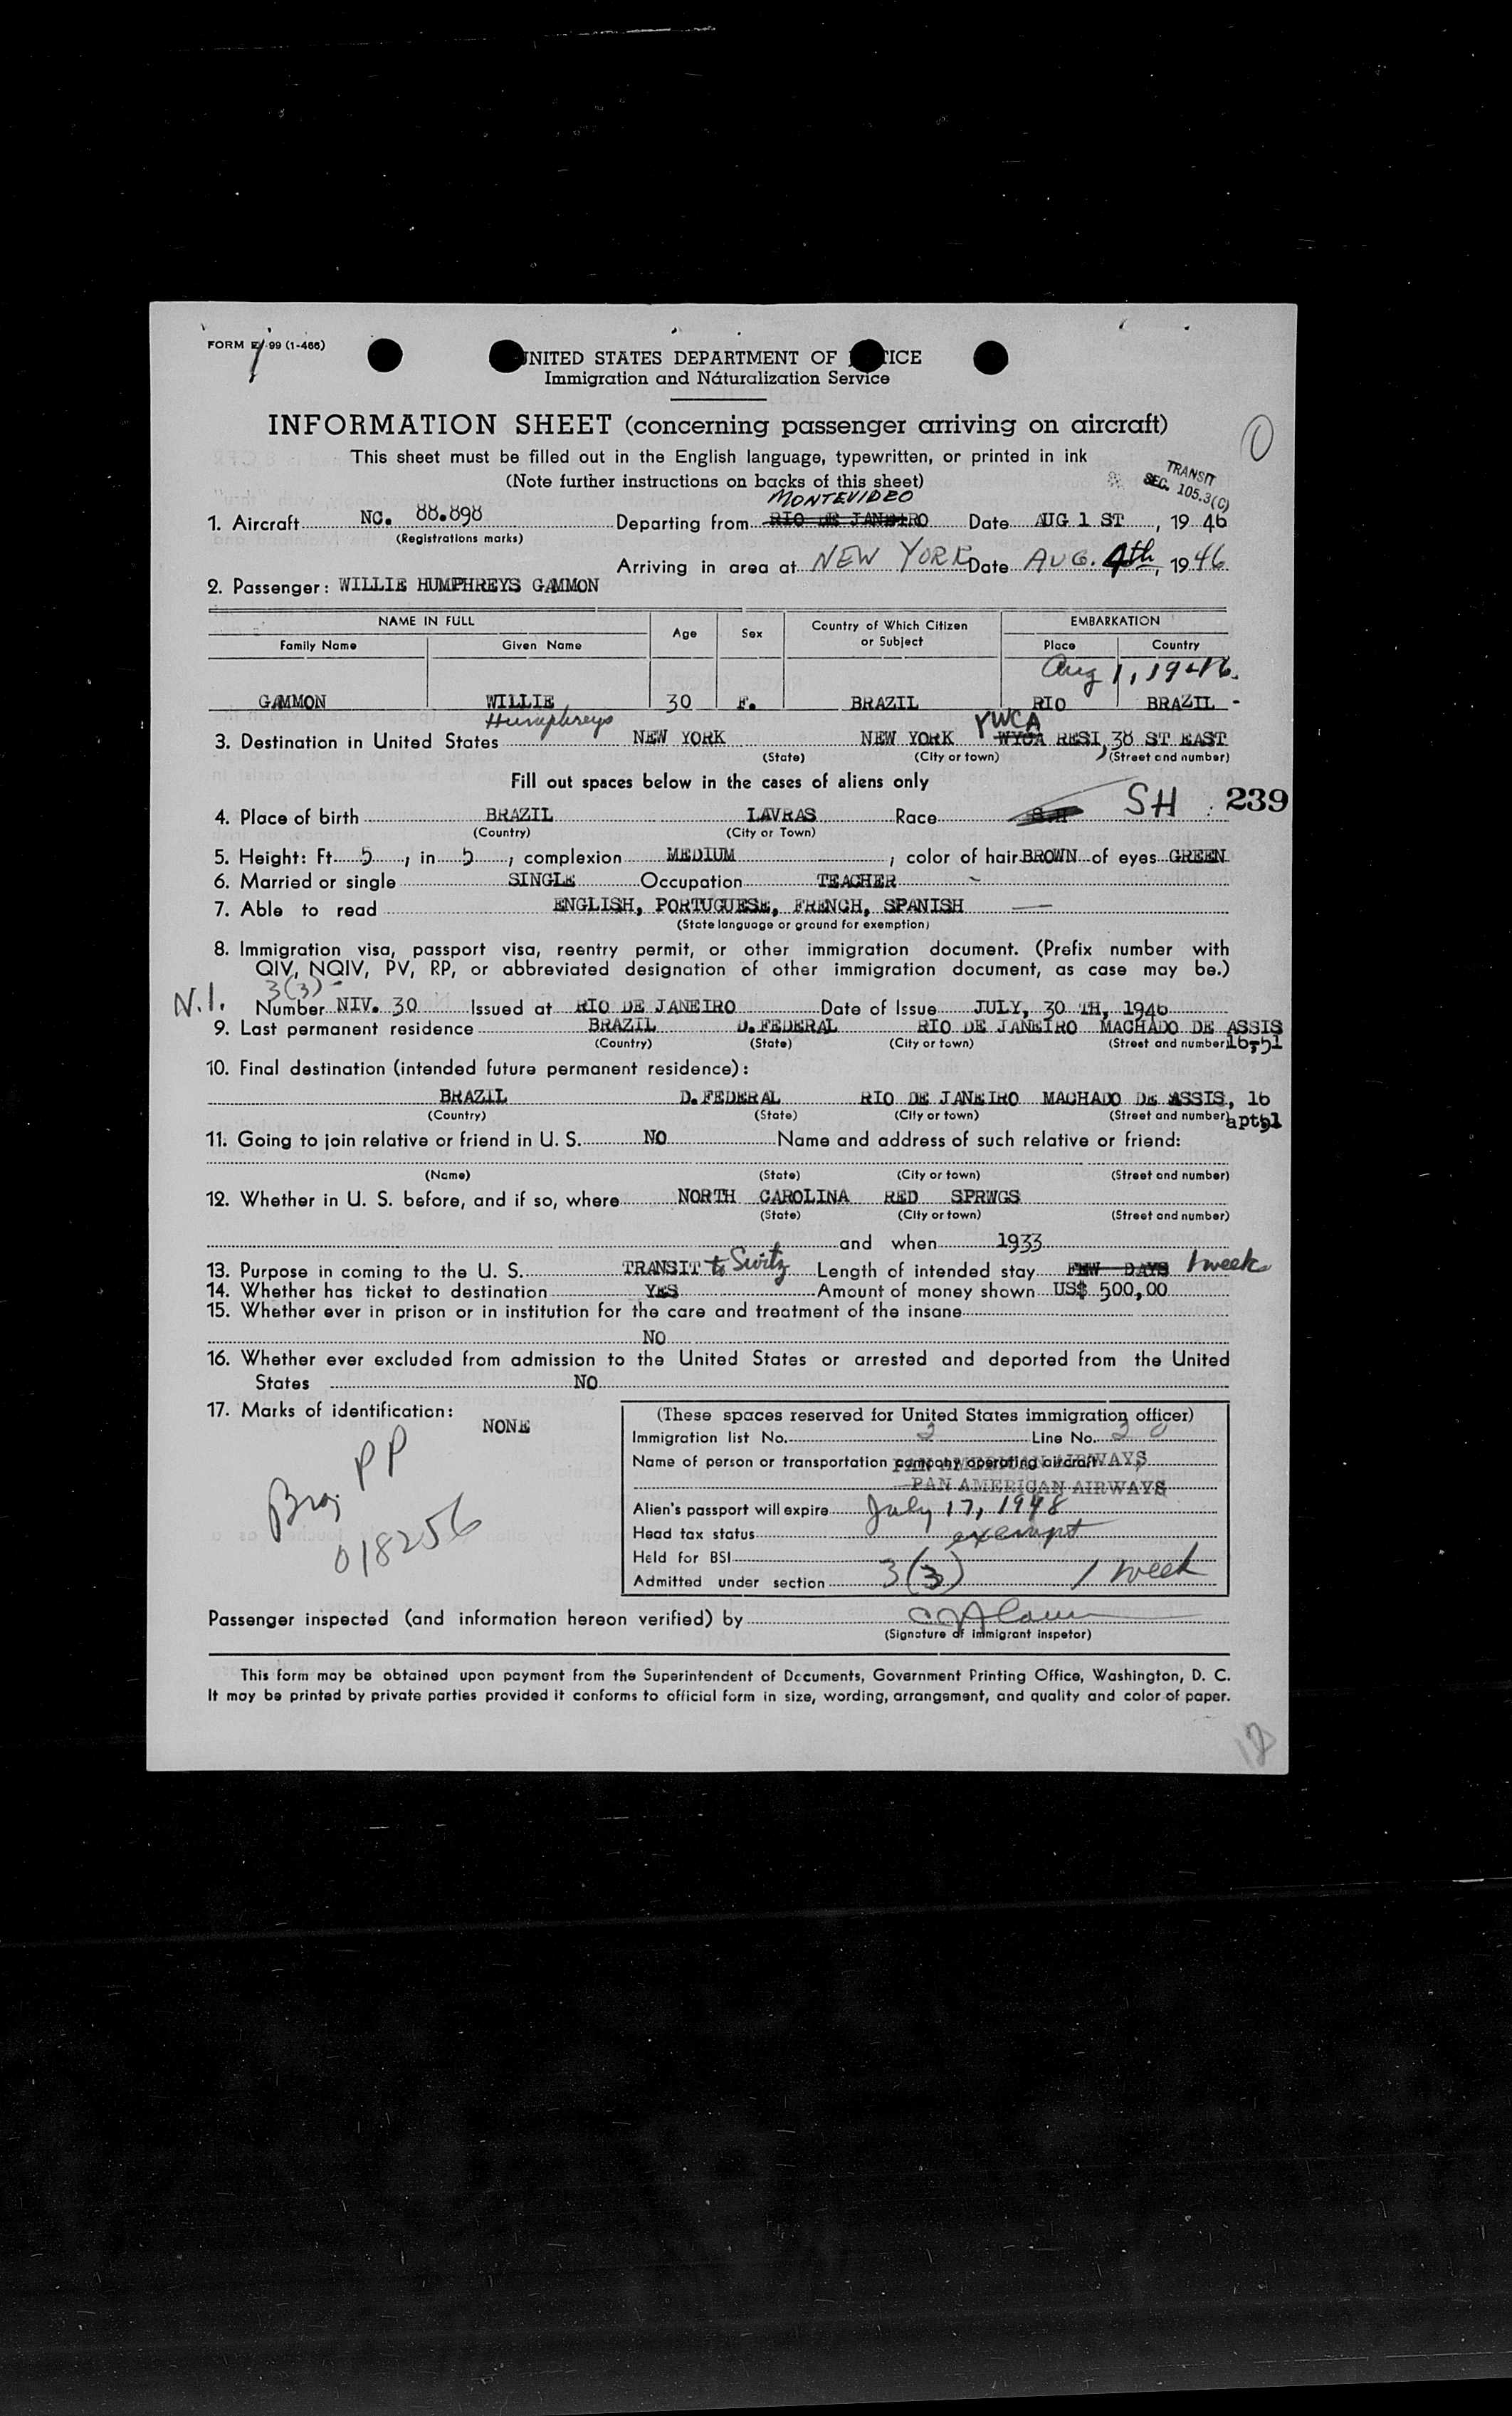 FORM I-99 (1-466)
UNITED STATES DEPARTMENT OF JUSTICE
Immigration and Naturalization Service
INFORMATION SHEET (concerning passenger arriving on aircraft)
This sheet must be filled out in the English language, typewritten, or printed in ink
(Note further instructions on backs of this sheet)
TRANSIT
SEC. 105.3(C)
MONTEVIDEO
1. Aircraft NC. 88.898 Departing from RIO DE JANEIRO Date AUG 1 ST, 1946
(Registrations marks)
Arriving in area at NEW YORK Date AUG. 4th, 1946
2. Passenger: WILLIE HUMPHREYS GAMMON
NAME IN FULL Age Sex Country of Which Citizen or Subject EMBARKATION
Family Name Given Name Place Country
Aug 1, 1946.
GAMMON WILLIE 30 F. BRAZIL RIO BRAZIL -
Humphreys YWCA
3. Destination in United States NEW YORK NEW YORK WYCA RESI, 38 ST EAST
(State) (City or town) (Street and number)
Fill out spaces below in the cases of aliens only
SH 239
4. Place of birth BRAZIL LAVRAS Race S.H
(Country) (City or Town)
5. Height: Ft. 5, in 5, complexion MEDIUM; color of hair BROWN of eyes GREEN
6. Married or single SINGLE Occupation TEACHER
7. Able to read ENGLISH, PORTUGUESE, FRENCH, SPANISH
(State language or ground for exemption)
8. Immigration visa, passport visa, reentry permit, or other immigration document. (Prefix number with
QIV, NQIV, PV, RP, or abbreviated designation of other immigration document, as case may be.)
3(3)
N.I. Number NIV. 30 Issued at RIO DE JANEIRO Date of Issue JULY, 30 TH, 1946
9. Last permanent residence BRAZIL D. FEDERAL RIO DE JANEIRO MACHADO DE ASSIS
(Country) (State) (City or town) (Street and number) 16-51
10. Final destination (intended future permanent residence):
BRAZIL D. FEDERAL RIO DE JANEIRO MACHADO DE ASSIS, 16
(Country) (State) (City or town) (Street and number) apt 51
11. Going to join relative or friend in U. S. NO Name and address of such relative or friend:
(Name) (State) (City or town) (Street and number)
12. Whether in U. S. before, and if so, where NORTH CAROLINA RED SPRWGS
(State) (City or town) (Street and number)
and when 1933
13. Purpose in coming to the U. S. TRANSIT to Switz Length of intended stay FEW DAYS 1 week
14. Whether has ticket to destination YES Amount of money shown US$ 500,00
15. Whether ever in prison or in institution for the care and treatment of the insane
NO
16. Whether ever excluded from admission to the United States or arrested and deported from the United
States NO
17. Marks of identification: NONE
Braz PP
018256
(These spaces reserved for United States immigration officer)
Immigration list No. 2 Line No.
Name of person or transportation company operating aircraft PAN AMERICAN AIRWAYS
PAN AMERICAN AIRWAYS
Alien's passport will expire July 17, 1948
Head tax status exempt
Held for BSI
Admitted under section 3(3) 1 week
Passenger inspected (and information hereon verified) by
(Signature of immigrant inspetor)
This form may be obtained upon payment from the Superintendent of Documents, Government Printing Office, Washington, D. C.
It may be printed by private parties provided it conforms to official form in size, wording, arrangement, and quality and color of paper.
12